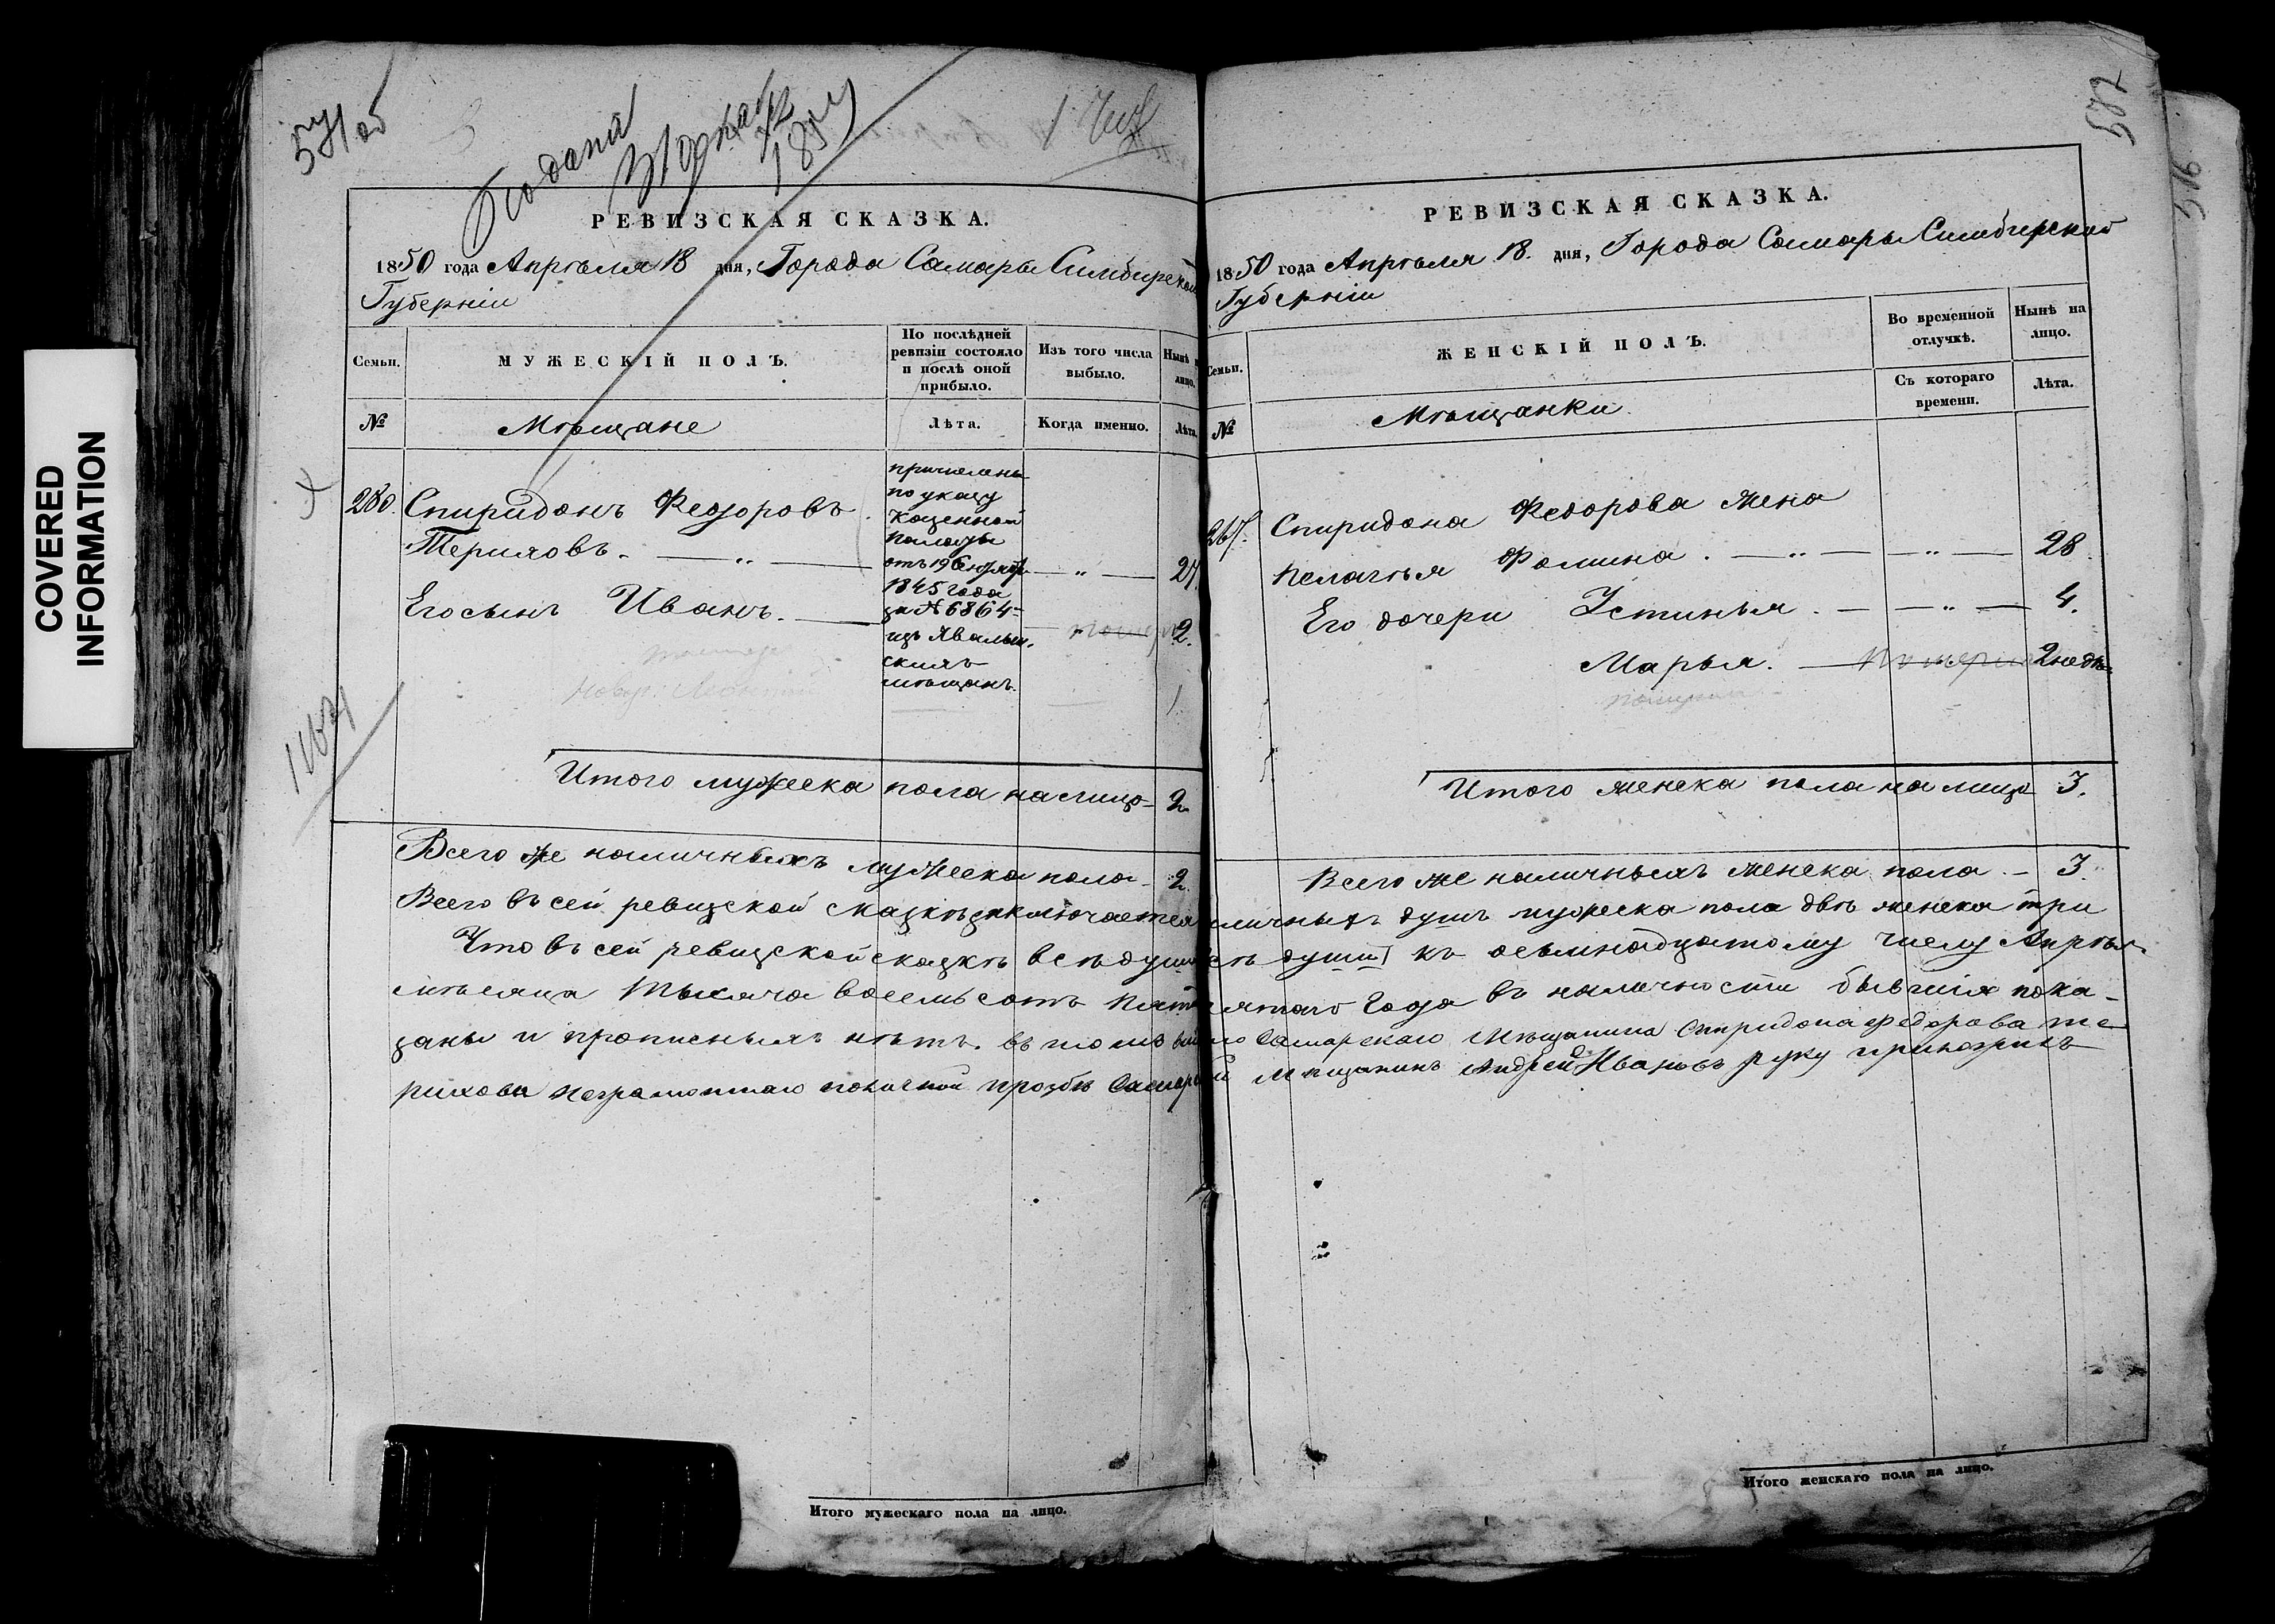 COVERED
INFORMATION
571 об
РЕВИЗСКАЯ СКАЗКА.
1850 года Апрѣля 18 дня, Города Самары Симбирской
Губерніи
Семьи.
МУЖЕСКІЙ ПОЛЪ.
По послѣдней
ревизіи состояло
и послѣ оной
прибыло.
Изъ того числа
выбыло.
Нынѣ
лицо.
№
Мѣщане
Лѣта.
Когда именно.
Лѣта.
280. Спиридонъ Федоровъ
Териховъ. — „ — — „ — 27.
Его сынъ Иванъ. — 2.
причислены
по указу
Казенной
Палаты
отъ 19
1845 года
за № 6864
изъ
скихъ
мѣщанъ.
Итого мужеска пола на лицо 2
Всего же наличныхъ мужеска пола 2.
Всего въ сей ревизской сказкѣ заключается
Что въ сей ревизской сказкѣ всѣ души
мѣсяца тысяча восемь сотъ пять
заны и прописныхъ нѣтъ. въ томъ
рихова неграмотнаго по личной прозбѣ
Итого мужескаго пола на лицо.
582
516
РЕВИЗСКАЯ СКАЗКА.
1850 года Апрѣля 18. дня, Города Самары Симбирской
Губерніи
Семьи.
ЖЕНСКІЙ ПОЛЪ.
Во временной
отлучкѣ.
Нынѣ на
лицо.
Съ котораго
времени.
Лѣта.
№
Мѣщанки
267. Спиридона Федорова жена
Пелагѣя Фомина. — „ — — „ — 28.
Его дочери Устинья. — — „ — 4.
Марья. — 2 недѣ.
Итого женска пола на лицо 3.
Всего же наличныхъ женска пола. — 3.
личныхъ душъ мужеска пола двѣ женска три
души къ осьмнадцатому числу Апрѣля
сятаго года въ наличности бывшія пока-
Самарскаго Мѣщанина Спиридона Федорова те
мѣщанинъ Андрей Ивановъ руку приложилъ
Итого женскаго пола на лицо.